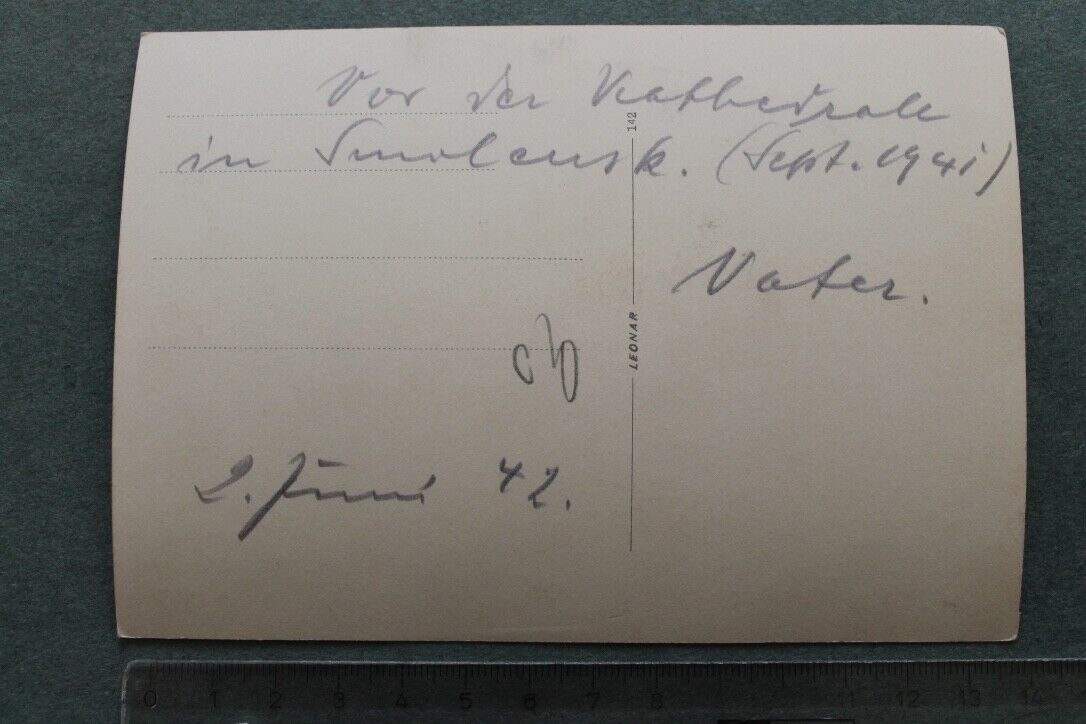 Vor der Kathedrale
in Smolensk. (Sept. 1941)
Vater.
2. Juni 42.
142
LEONAR
0 1 2 3 4 5 6 7 8 11 12 13 14